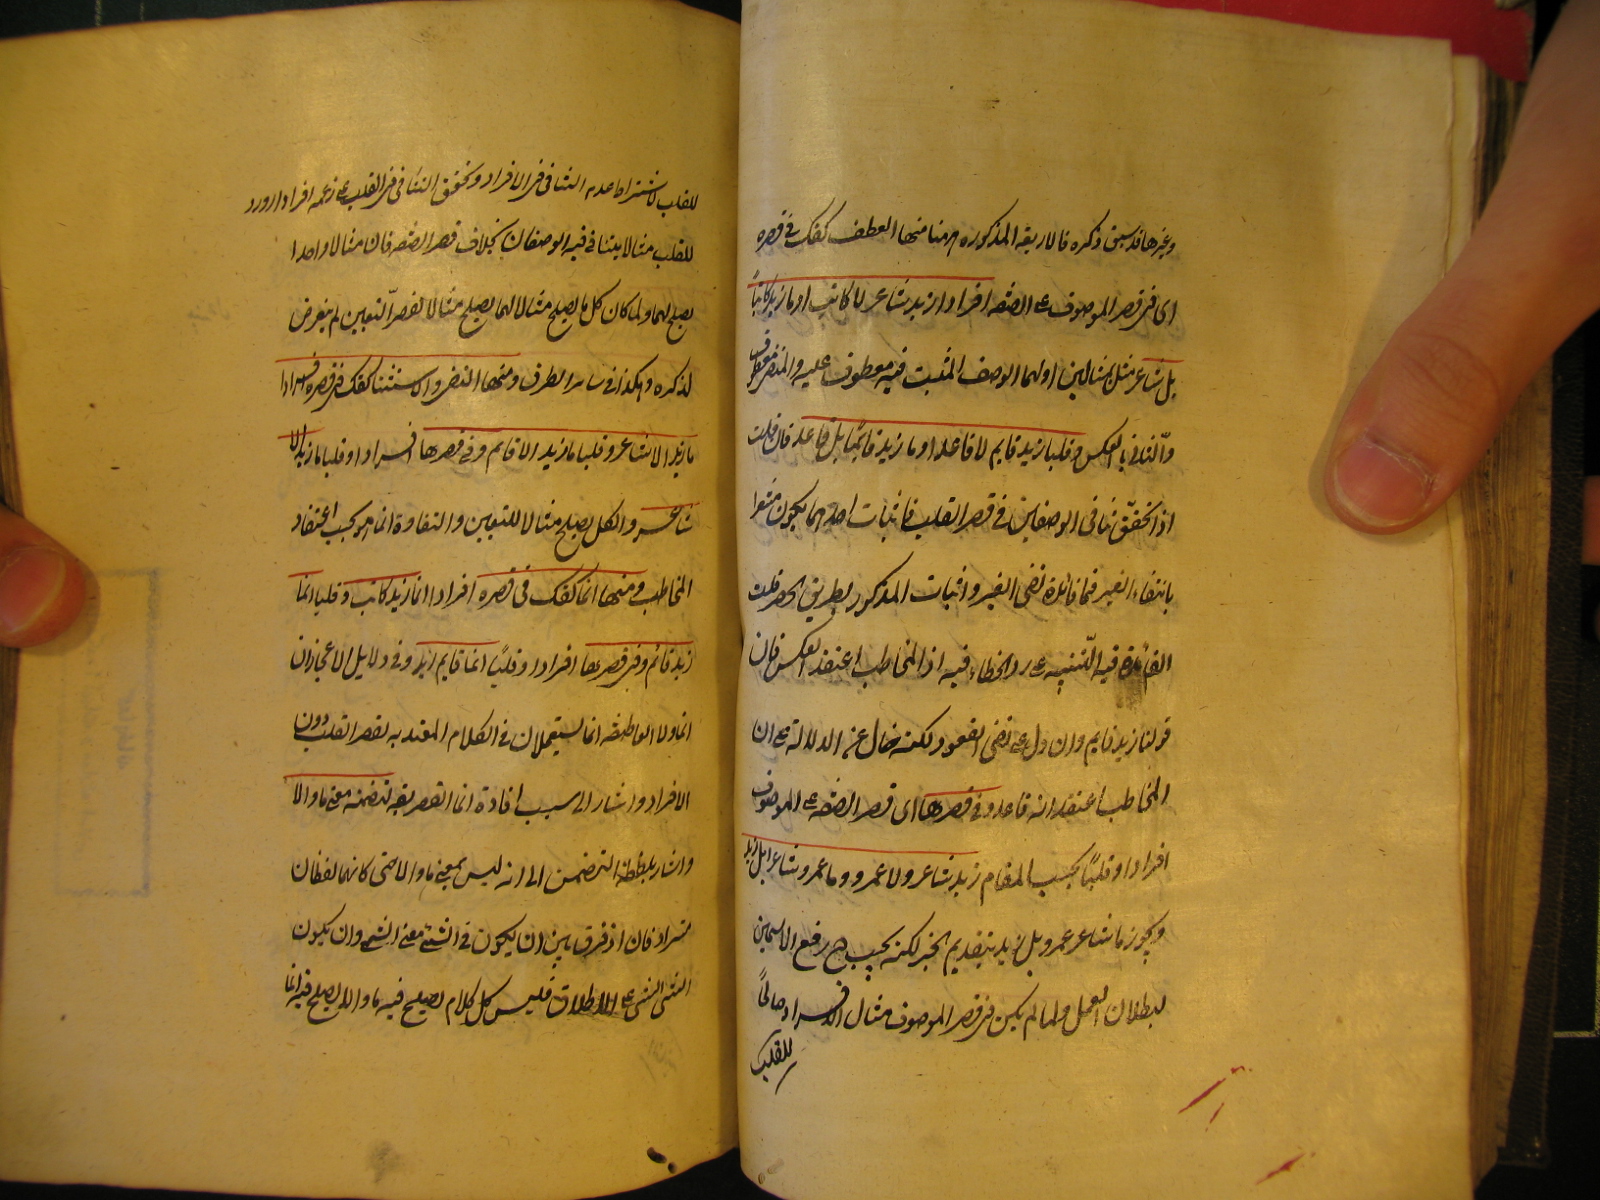 وغيرها قد سبق ذكره فالاربعة المذكورة هنا منها العطف كقولك في قصره
اى فى قصر الموصوف على الصفة افرادا زيد شاعر لا كاتب او ما زيد كاتبا
بل شاعر مثل بمثالين اولهما الوصف المثبت فيه معطوف عليه والمنفى معطوف
والثانى بالعكس وقلبا زيد قايم لا قاعد او ما زيد قائما بل قاعد فان قلت
اذا تحقق تنافى الوصفين فى قصر القلب فاثبات احدهما يكون مشعرا
بانتفاء الغير فما فائدة نفى الغير واثبات المذكور بطريق الحصر قلت
الفائدة فيه التنبيه على رد الخطاء فيه اذ المخاطب اعتقد العكس فان
قولنا زيد قايم وان دل على نفى القعود ولكنه خال عن الدلالة على ان
المخاطب اعتقد انه قاعد وفى قصرها اى قصر الصفة على الموصوف
افرادا وقلبا بحسب المقام زيد شاعر ولا عمرو وما عمرو شاعرا بل زيد
ويجوز ما شاعر عمرو بل زيد بتقديم الخبر لكنه يجب ح رفع الاسمين
لبطلان العمل ولما لم يكن فى قصر الموصوف مثال الافراد صالحا
للقلب
للقلب لاشتراط عدم التنافى فى الافراد وتحقق التنافى فى القلب على زعمه افرادا اورد
للقلب مثالا يتنافى فيه الوصفان بخلاف قصر الصفة فان مثالا واحدا
يصلح لهما ولما كان كل ما يصلح مثالا لهما يصلح مثالا لقصر التعيين لم يتعرض
لذكره وهكذا فى ساير الطرق ومنها النفى والاستثنا كقولك فى قصره افرادا
ما زيد الا شاعر وقلبا ما زيد الا قايم وفى قصرها افرادا وقلبا ما زيد الا
شاعر والكل يصلح مثالا للتعيين والتفاوة انما هو بحسب اعتقاد
المخاطب ومنها انما كقولك فى قصره افرادا انما زيد كاتب وقلبا انما
زيد قائم وفى قصرها افرادا وقلبا انما قايم زيد وفى دلايل الاعجاز ان
انما ولا العاطفة انما يستعملان فى الكلام المعتد به لقصر القلب دون
الافراد واشار الى سبب افادة انما القصر بقوله لتضمنه معنى ما والا
واشار بلفظة التضمن الى انه ليس بمعنى ما والا حتى كانهما لفظان
مترادفان اذ فرق بين ان يكون فى الشئ معنى الشئ وان يكون
الشئ الشئ على الاطلاق فليس كل كلام يصلح فيه ما والا يصلح فيه انما